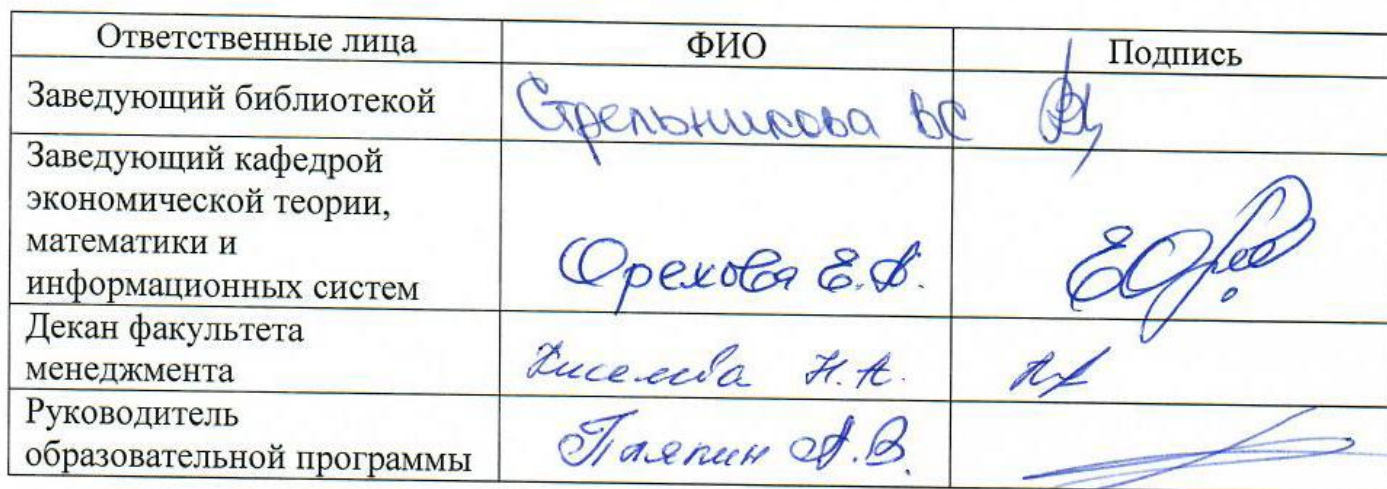 Ответственные лица ФИО Подпись
Заведующий библиотекой Стрельникова ВС
Заведующий кафедрой
экономической теории,
математики и
информационных систем Орехова Е.А.
Декан факультета
менеджмента Н.А.
Руководитель
образовательной программы А.В.